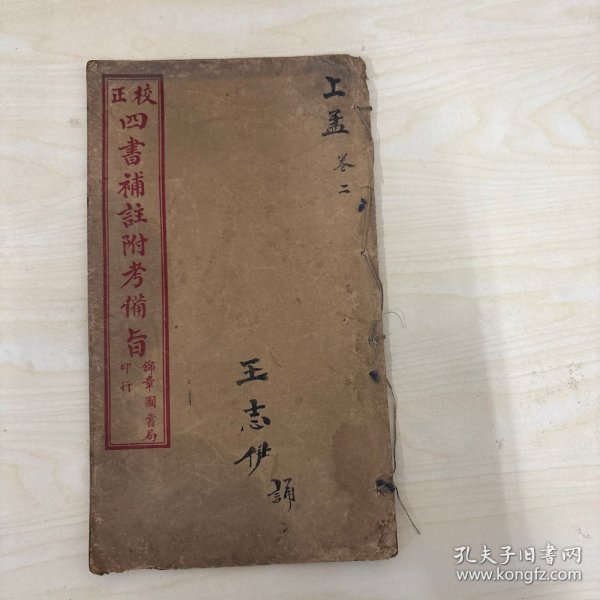 上孟
卷二
王志伊
誦
校正
四書補註附考備旨
錦章圖書局
印行
孔夫子旧书网
www.kongfz.com